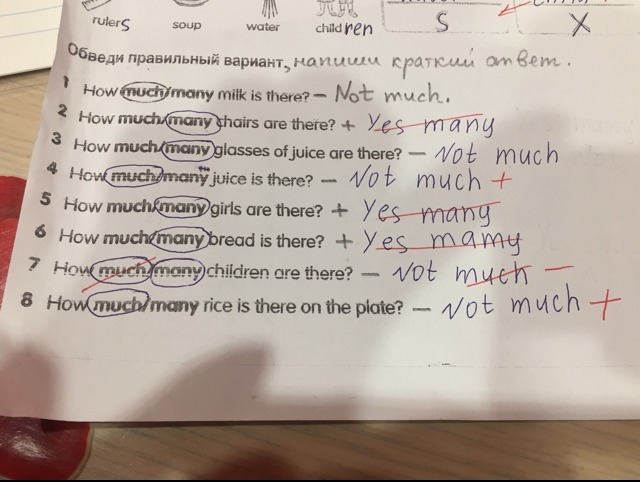 rulerS soup water children
S X
Обведи правильный вариант, напиши краткий ответ.
1 How much/many milk is there? – Not much.
2 How much/many chairs are there? + Yes many
3 How much/many glasses of juice are there? – Not much
4 How much/many juice is there? – Not much +
5 How much/many girls are there? + Yes many
6 How much/many bread is there? + Yes mamy
7 How much/many children are there? – Not much –
8 How much/many rice is there on the plate? – Not much +